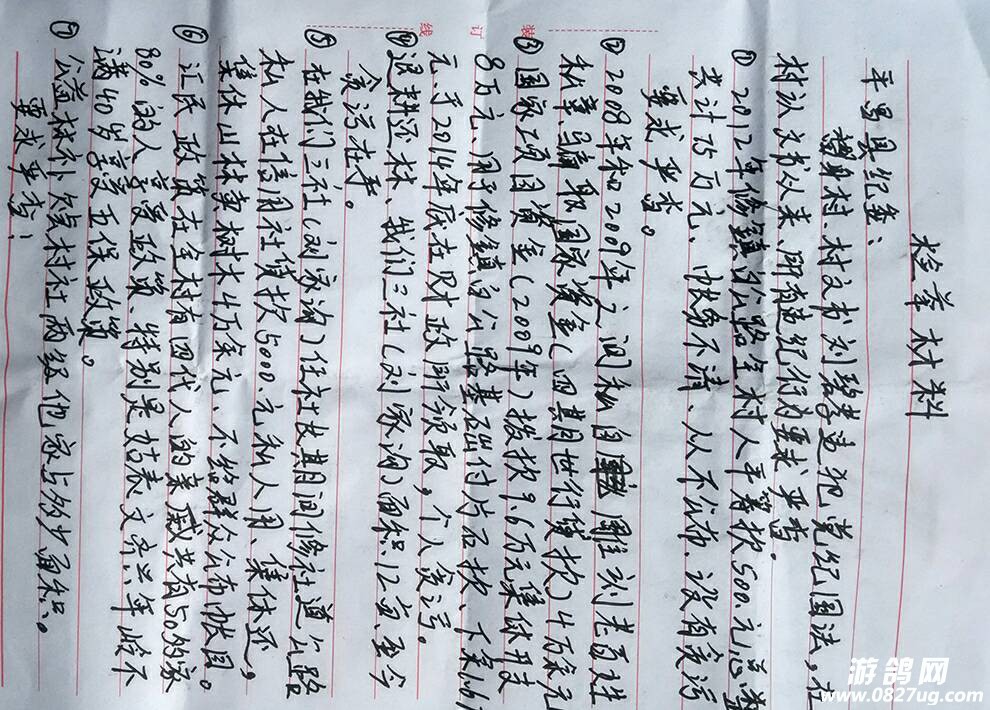 检举材料
平昌县纪委:
村、村文书刘碧孝违犯党纪国法,在
村认文书以来,所有违纪行为要求严查。
① 2012年修镇公路全村人平筹款500.元,总数
共计75万元、帐务不清、从不公布.没有贪污
要求严查。
② 2008年和2009年之间私自雕刻老百姓
私章.骗取国家资金(四期世行贷款)4万余元
③ 国家项目资金(2009年)拨款9.6万元集体开支
8万元、用于修镇公路基础付片石款、下余1.6万
元、于2014年底在财政所领取,个人贪污。
④ 退耕还林、我们三社(刘家沟)面积12亩、至今
贪污在手。
⑤ 在我们三社(刘家沟)任社长期间修社道公路
私人在信用社贷款5000.元私人用、集体还,
集体山林卖树木4万余元、不给群众公布帐目。
⑥ 让民政策在全村有四代人的亲戚共有50多家
80%的人享受政策、特别是姑表文齐兴年龄不
满40岁享受五保政策。
⑦ 公益林补欠与村社两级他家与多少面积。
要求严查;
装
订
线
游鸽网
www.0827ug.com